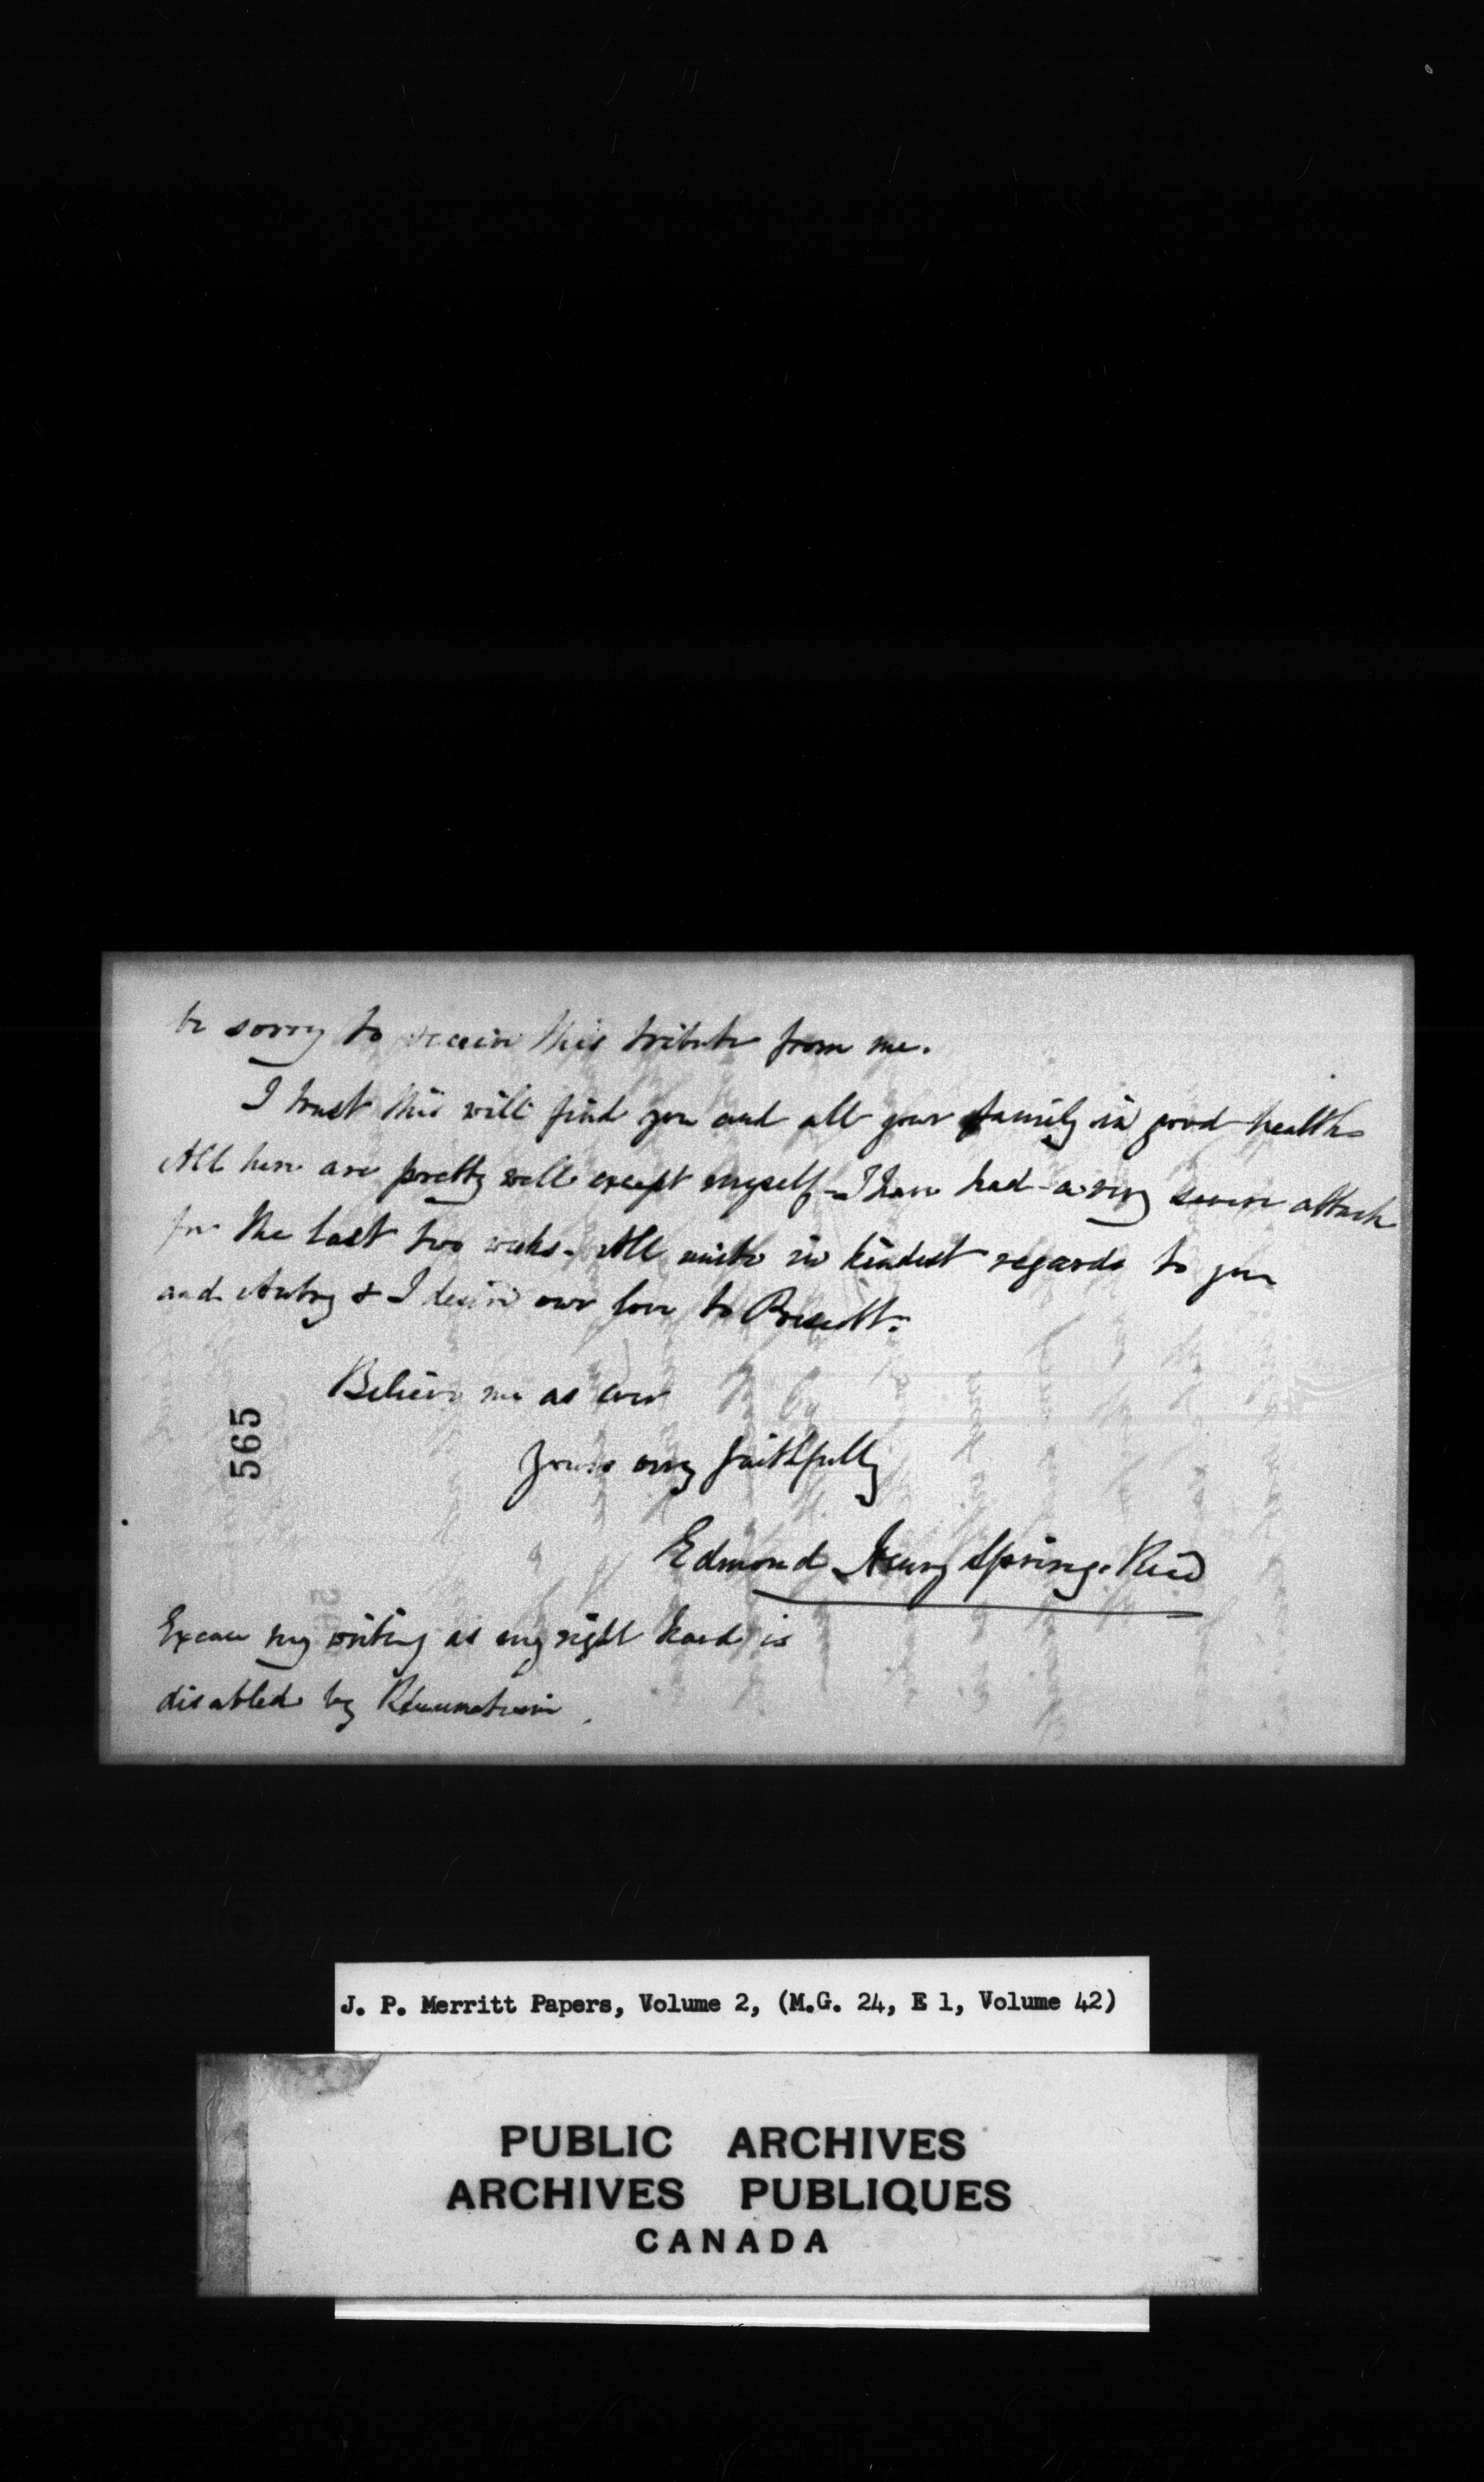 be sorry to receive this tribute from me.
I trust this will find you and all your family in good health
All here are pretty well except myself - I have had a very severe attack
for the last two weeks. All unite in kindest regards to you
and Aubrey & I desire our love to Prescott.
Believe me as ever
yours very faithfully
Edmond Henry Spring-Rice
Excuse my writing as my right hand is
disabled by Rheumatism
565
J. P. Merritt Papers, Volume 2, (M.G. 24, E 1, Volume 42)
PUBLIC ARCHIVES
ARCHIVES PUBLIQUES
CANADA